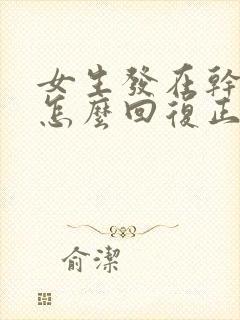 女生發在幹
怎麼回復正
俞潔